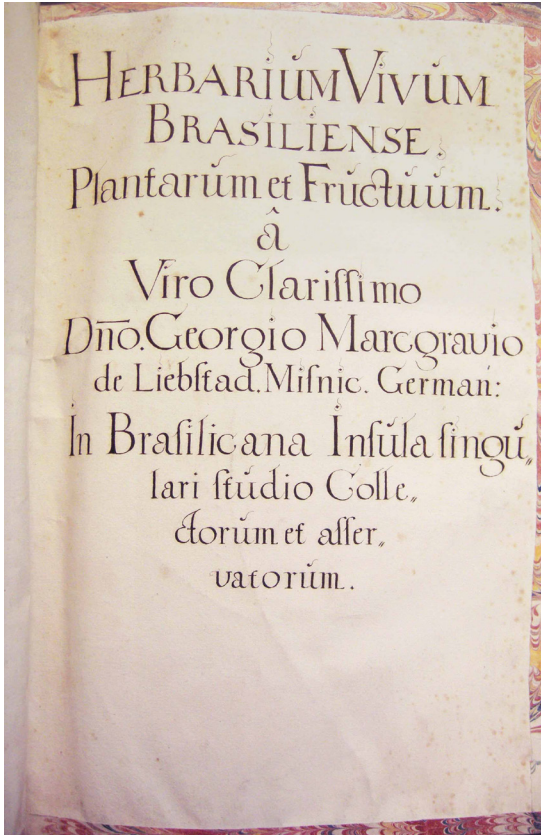 HERBARIŬM VIVŬM
BRASILIENSE.
Plantarŭm et Frŭctŭŭm.
â
Viro Clariſſimo
Dn̅o. Georgio Marcgravio
de Liebſtad. Miſnic. German:
In Braſilicana Inſŭla ſingŭ„
lari ſtŭdio Colle„
ctorŭm et aſſer„
vatorŭm.